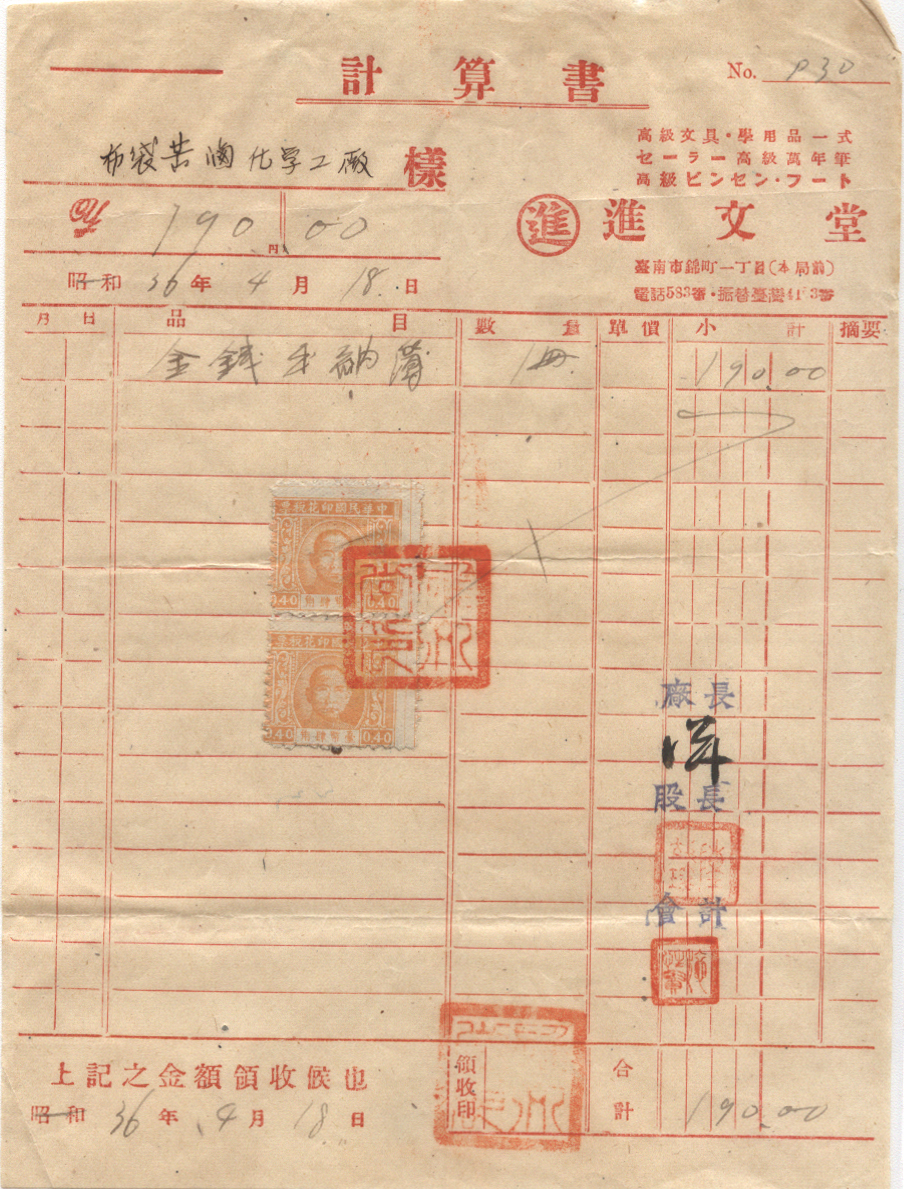 計算書
No. P30
布袋苦滷化学工廠 樣
高級文具・學用品一式
セーラー高級萬年筆
高級ビンセン・フート
190円00
進 進文堂
臺南市錦町一丁目(本局前)
昭和36年4月18日
電話583番・振替臺灣
月 日 品目 數量 單價 小計 摘要
金錢出納簿 1冊 190.00
中華民國印花稅票
0.40
0.40
0.40 0.40
廠長
股長
會計
上記之金額領收候也
領收印
合計 190.00
昭和36年4月18日